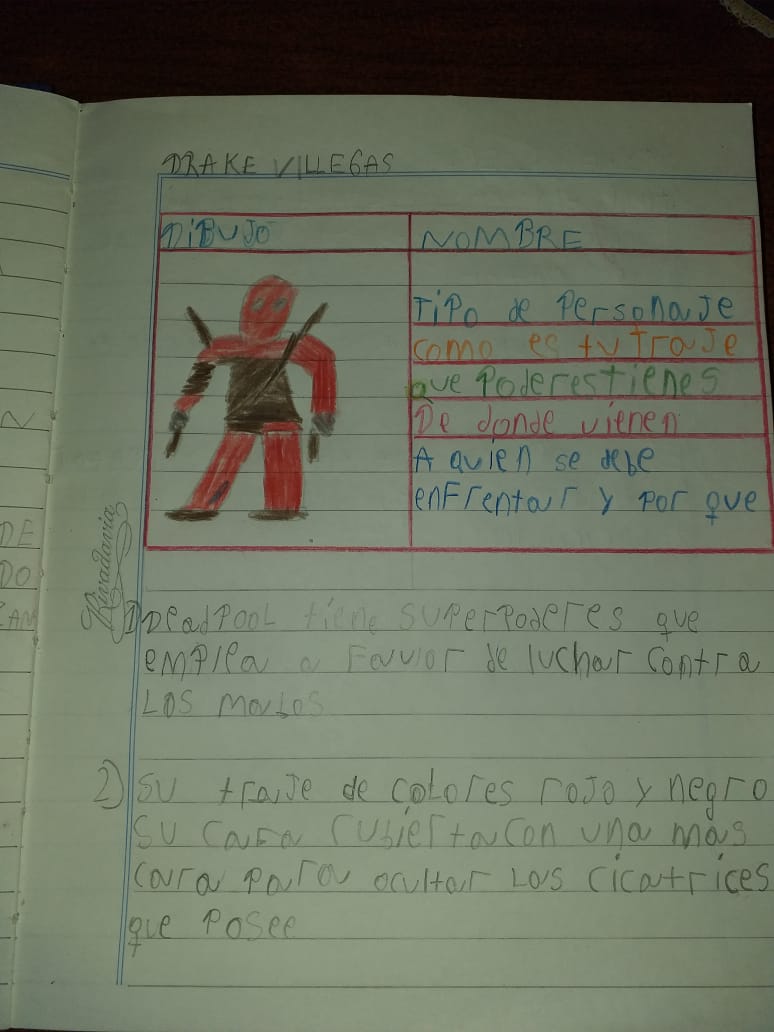 DRAKE VILLEGAS
DiBUJO
NOMBRE
TiPO de Personaje
como es tu traje
que Poderestienes
De donde vienen
A quien se debe
enFrentar y por que
N
DE
DO
Rivadavia
1) DeadPOOL tiene SUPerPoderes que
emplea a Favor de luchar contra
LOS malos
2) SU traje de colores rojo y negro
SU cara cubierta con una mas
cara para ocultar Las cicatrices
que Posee